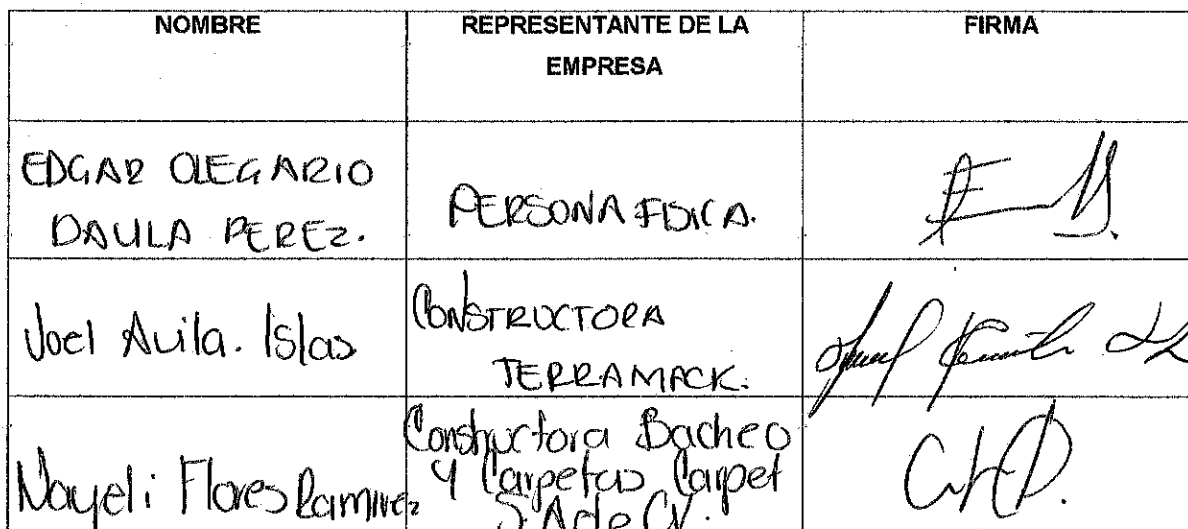 NOMBRE
REPRESENTANTE DE LA
EMPRESA
FIRMA
EDGAR OLEGARIO
DAVILA PEREZ.
PERSONA FISICA.
Joel Avila. Islas
CONSTRUCTORA
TERRAMACK.
Nayeli Flores Ramirez
Constructora Bacheo
y Carpetas Carpet
S.A de CV.